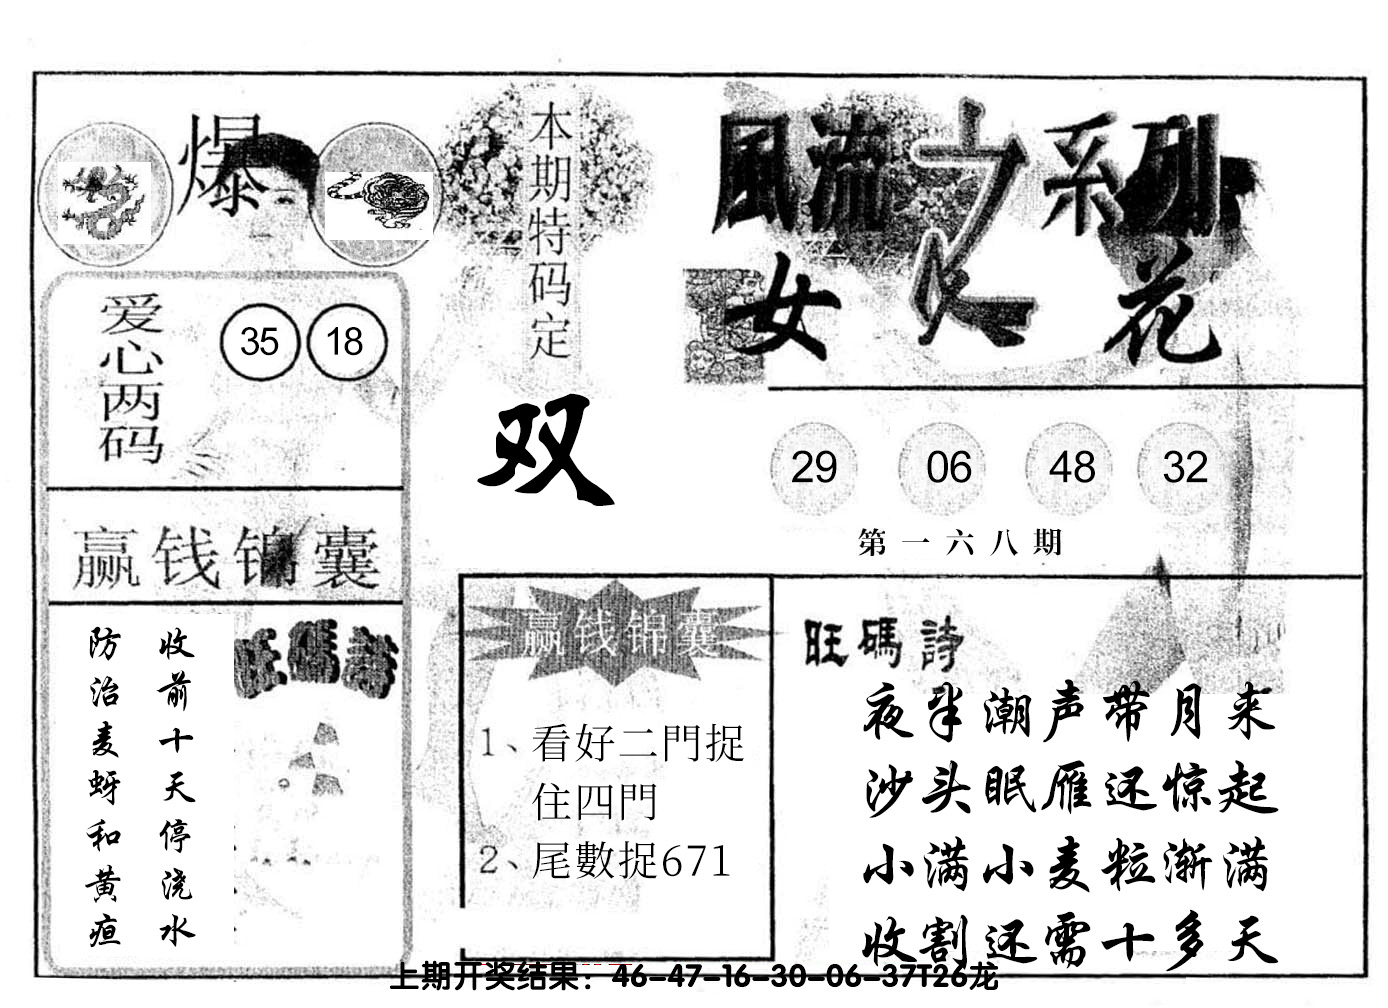 爆
本期特码定
双
風流之系列
女人花
爱心两码
35 18
29 06 48 32
第一六八期
赢钱锦囊
收前十天停浇水
防治麦蚜和黄疸
旺碼詩
赢钱锦囊
1、看好二門捉
住四門
2、尾數捉671
旺碼詩
夜半潮声带月来
沙头眠雁还惊起
小满小麦粒渐满
收割还需十多天
上期开奖结果：46-47-16-30-06-37T26龙